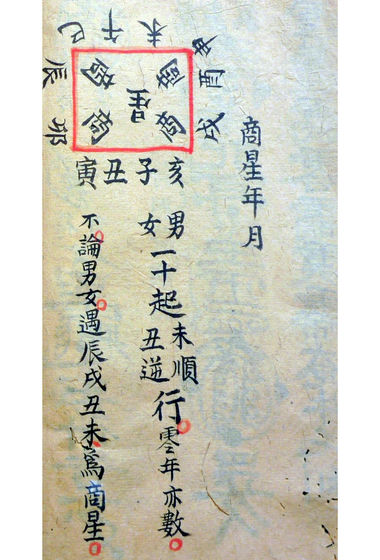 商星年月
巳午未申
辰
酉
卯
戌
商
星
商
商
寅丑子亥
男女一十起未順丑逆行零年亦數
不論男女遇辰戌丑未爲商星